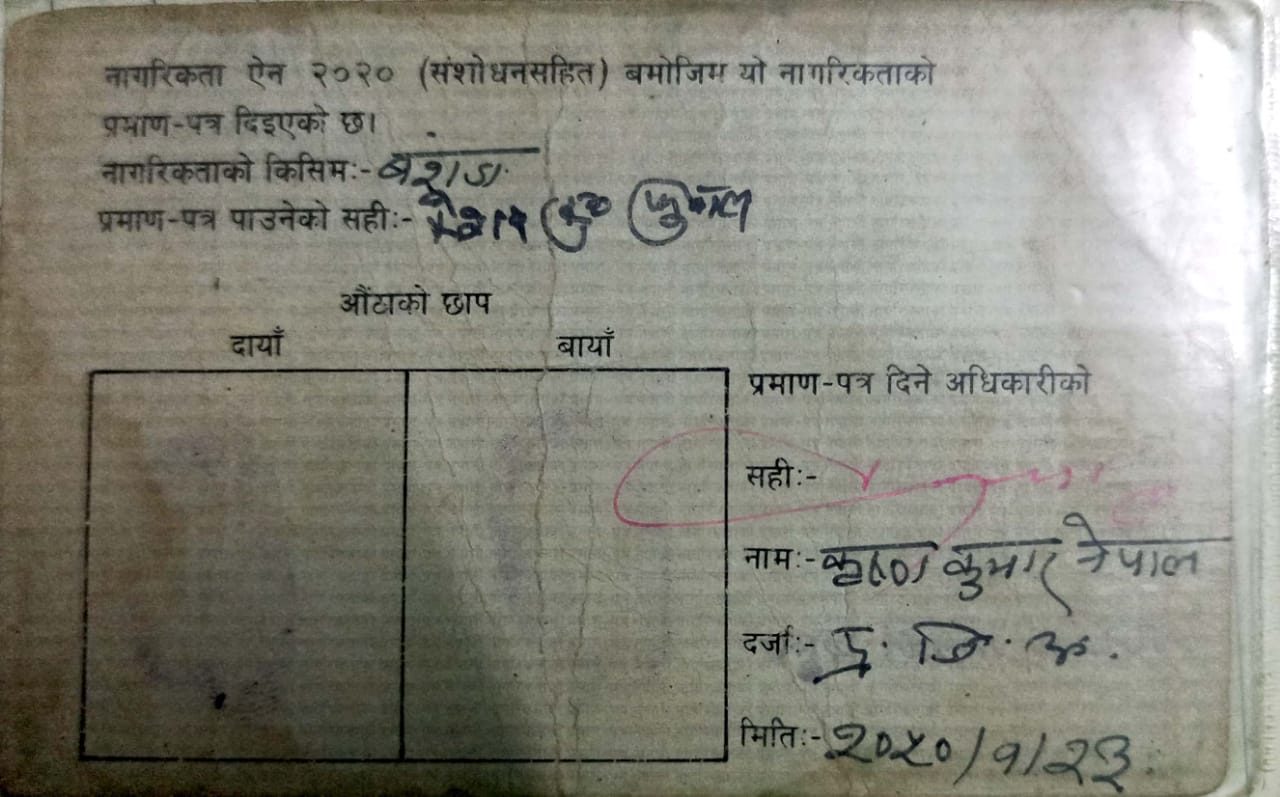 नागरिकता ऐन २०२० (संशोधनसहित) बमोजिम यो नागरिकताको
प्रमाण-पत्र दिइएको छ।
नागरिकताको किसिम:- बंशज
प्रमाण-पत्र पाउनेको सही:-
औंठाको छाप
दायाँ बायाँ
प्रमाण-पत्र दिने अधिकारीको
सही:-
नाम:- कृष्ण कुमार नेपाल
दर्जा:- प्र. जि. अ.
मिति:- २०५०/१/२३